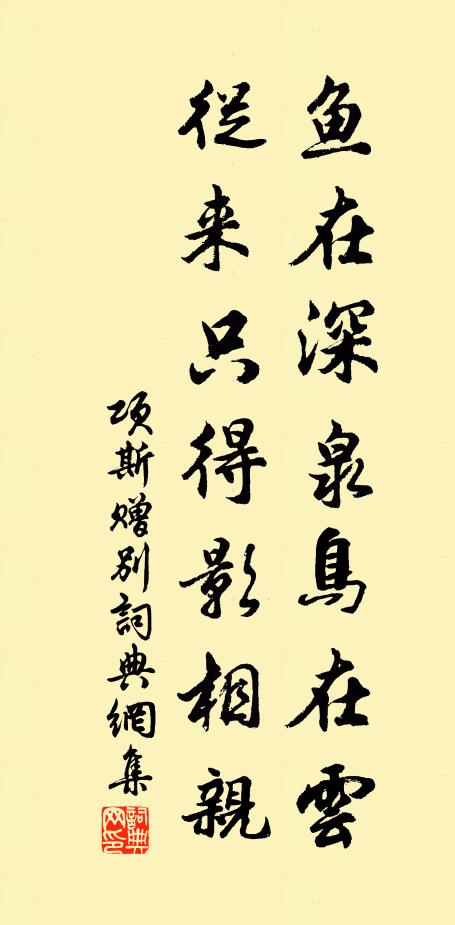 鱼在深泉鳥在雲
從来只得影相親
項斯贈别詞典網集
詞典网印